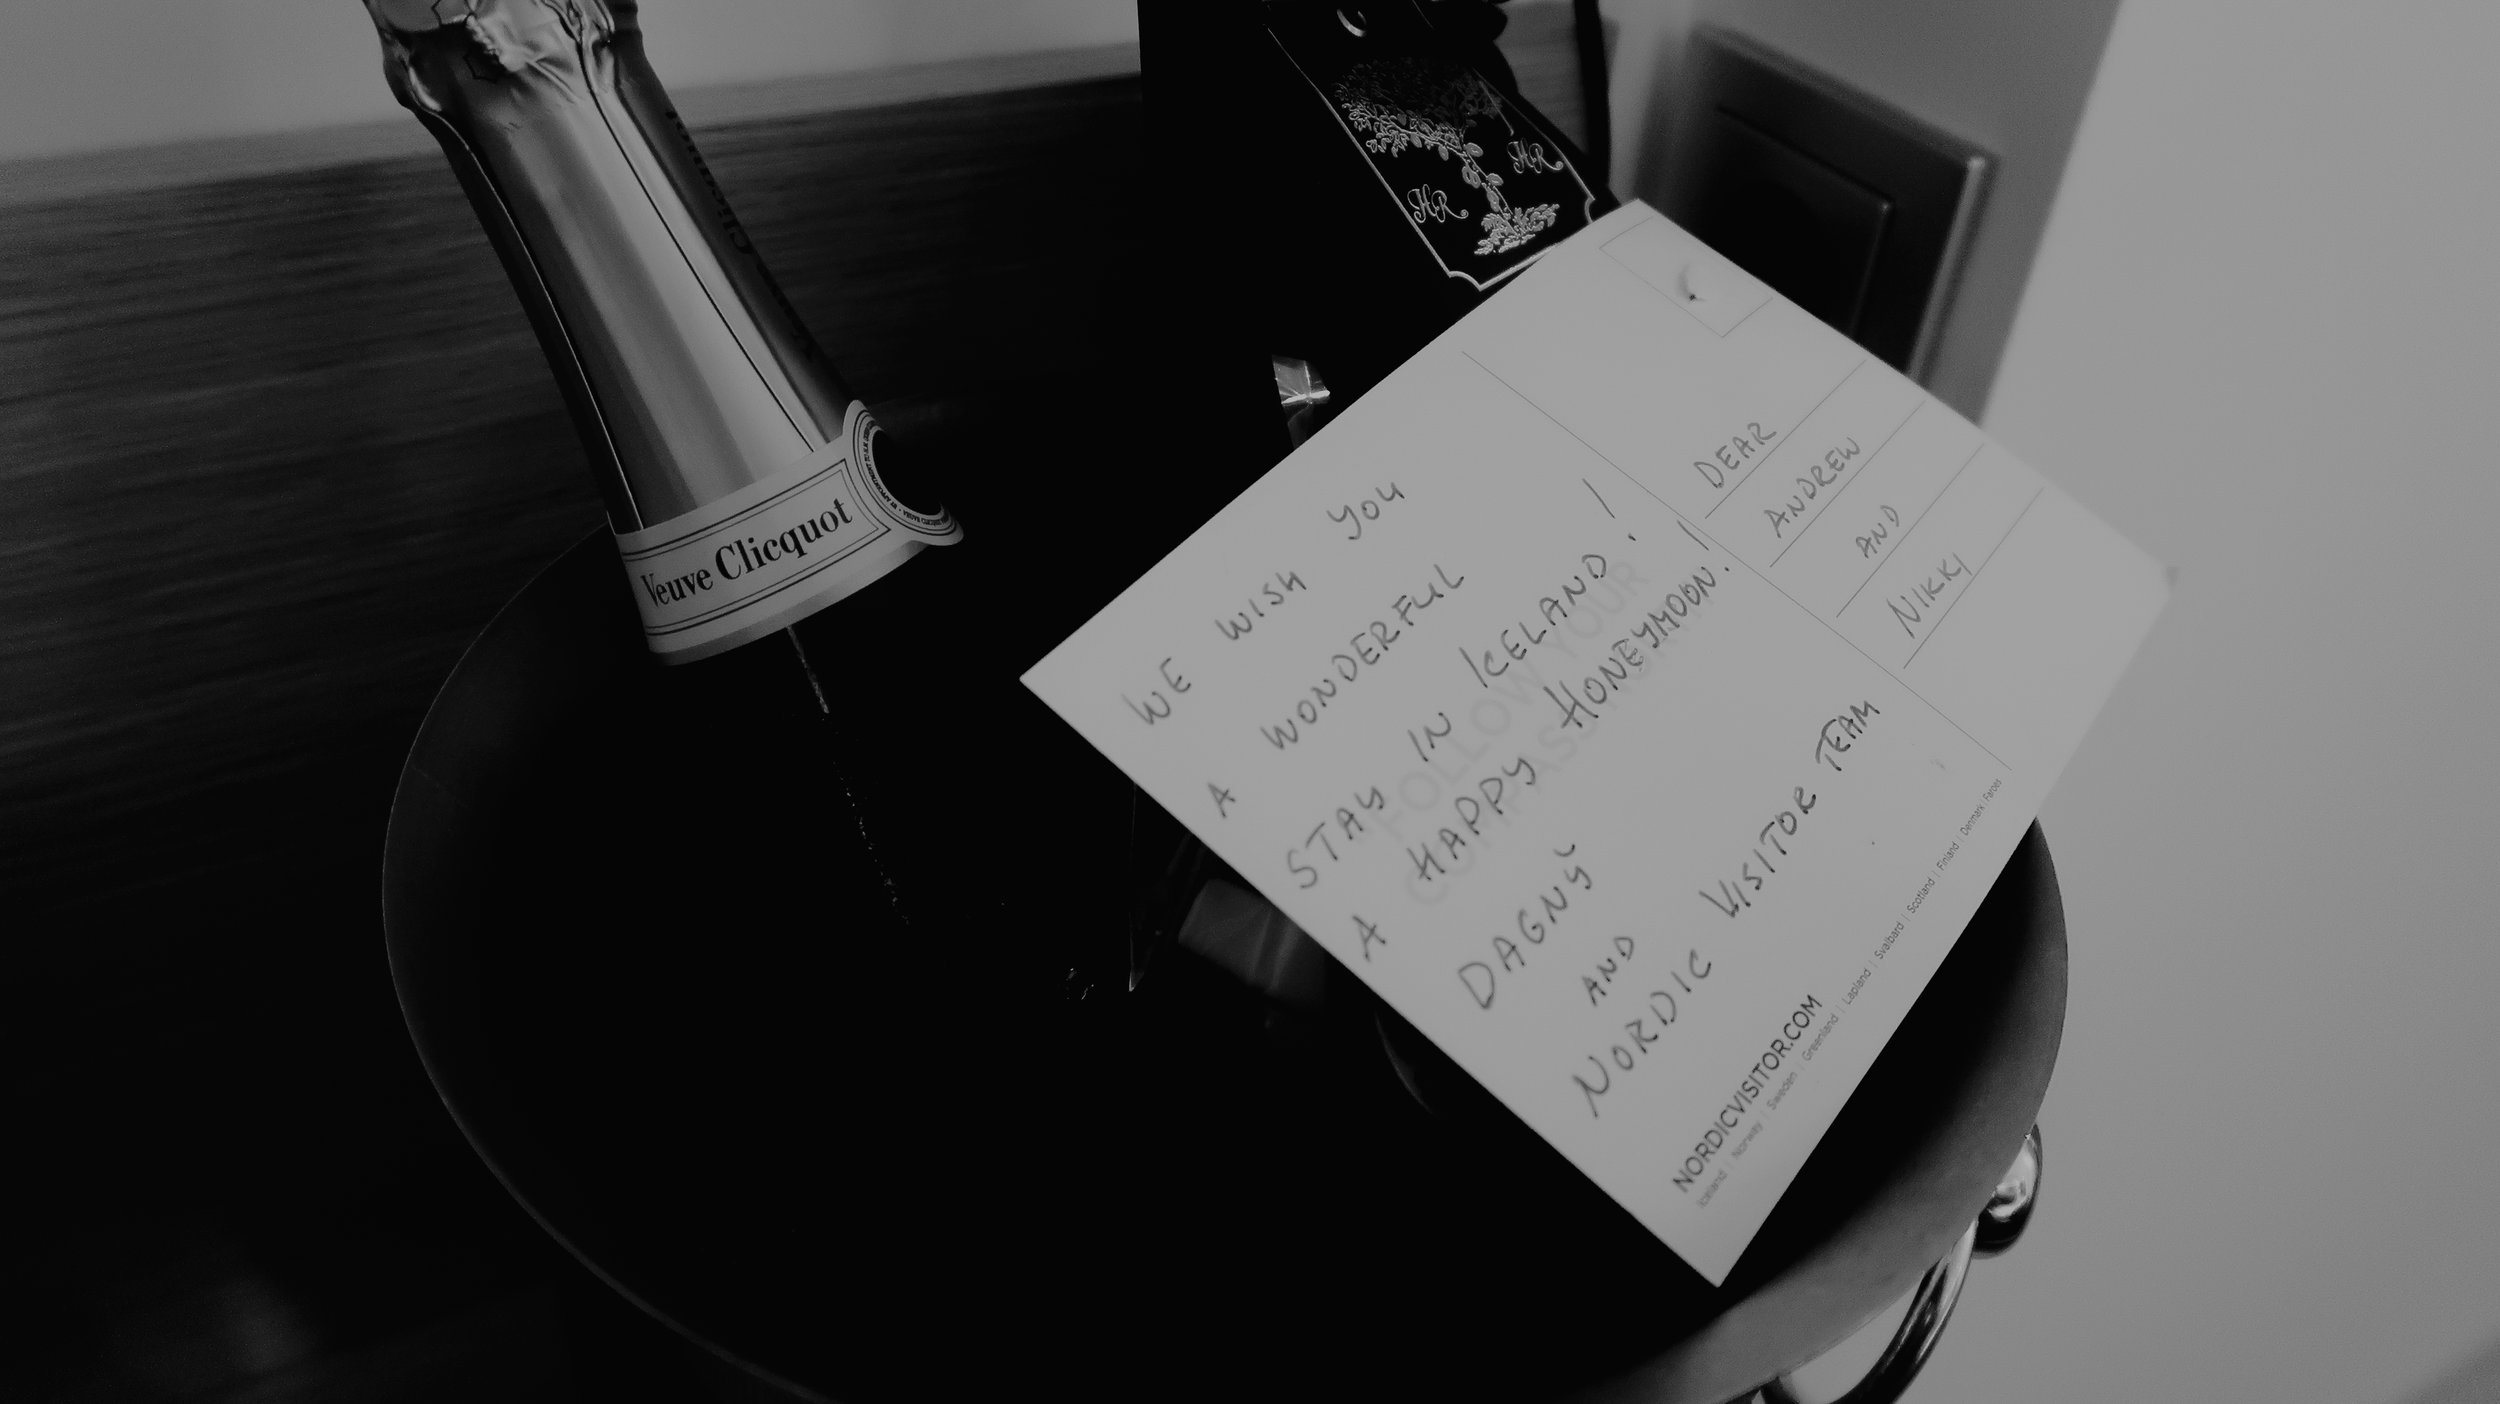 Veuve Clicquot
HR
HR
DEAR
ANDREW
AND
NIKKI
WE WISH YOU
A WONDERFUL
STAY IN ICELAND!
A HAPPY HONEYMOON!
DAGNÝ
AND
NORDIC VISITOR TEAM
FOLLOW YOUR
NORDICVISITOR.COM
Iceland | Norway | Sweden | Greenland | Lapland | Svalbard | Scotland | Finland | Denmark Faroes